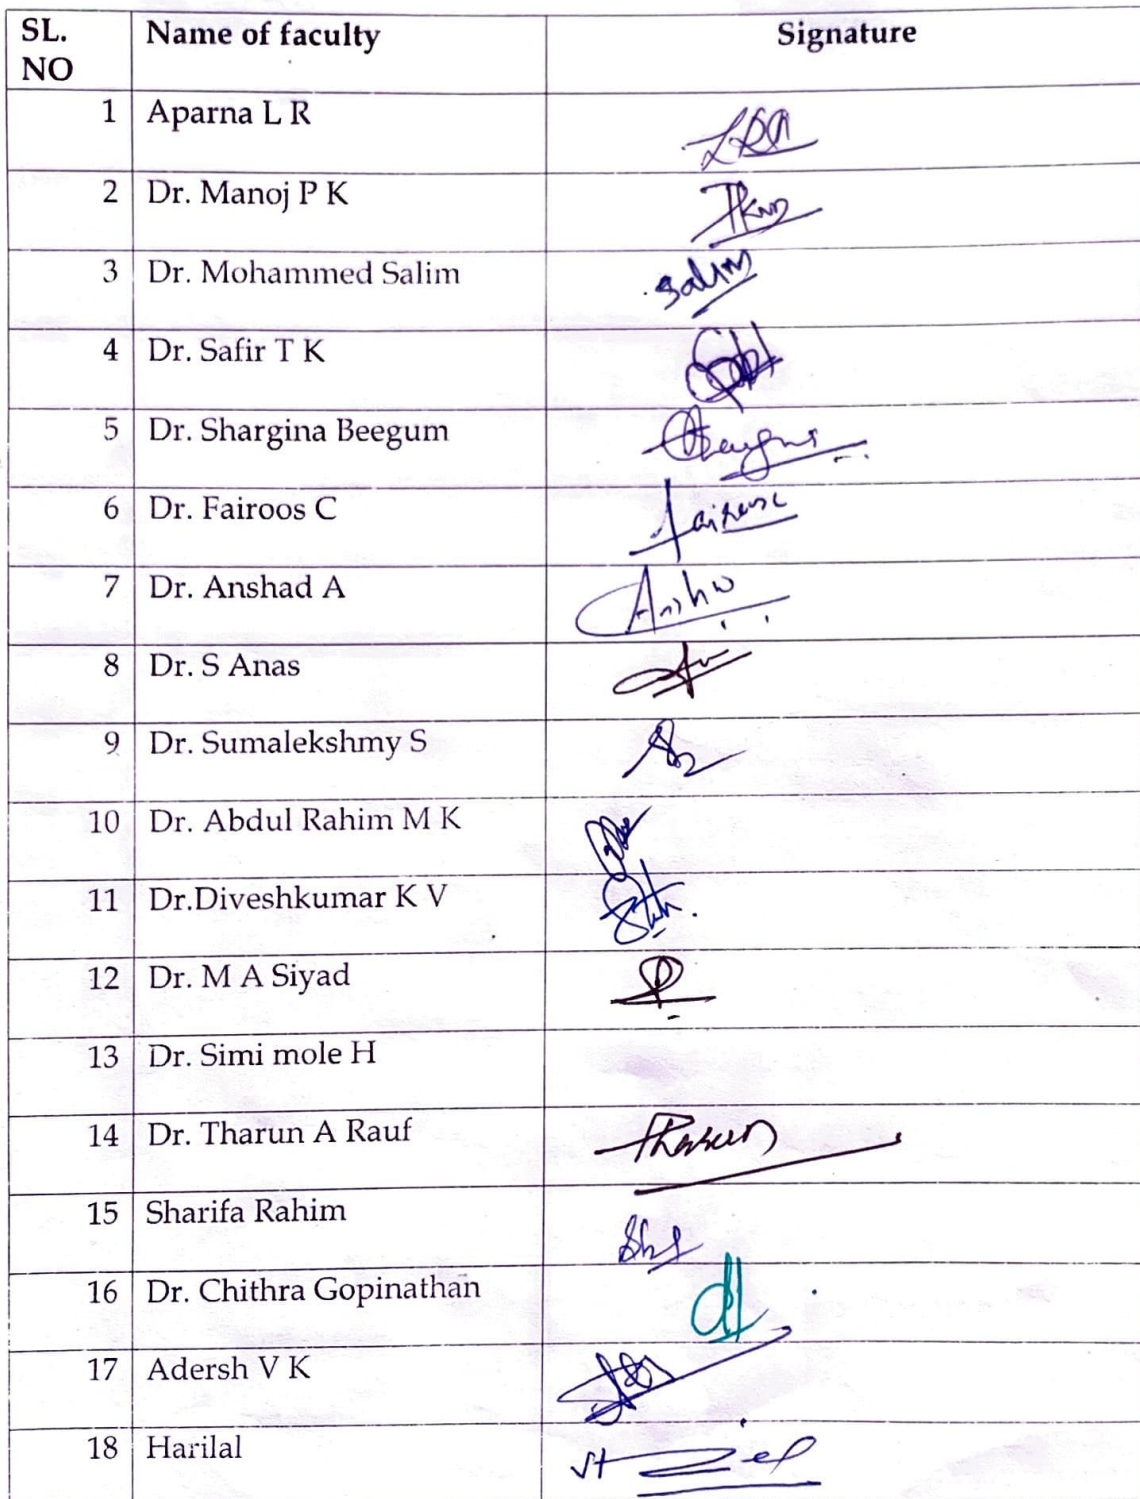 SL. NO Name of faculty Signature
1 Aparna L R
2 Dr. Manoj P K
3 Dr. Mohammed Salim Salim
4 Dr. Safir T K
5 Dr. Shargina Beegum
6 Dr. Fairoos C
7 Dr. Anshad A
8 Dr. S Anas
9 Dr. Sumalekshmy S
10 Dr. Abdul Rahim M K
11 Dr.Diveshkumar K V
12 Dr. M A Siyad
13 Dr. Simi mole H
14 Dr. Tharun A Rauf
15 Sharifa Rahim
16 Dr. Chithra Gopinathan
17 Adersh V K
18 Harilal